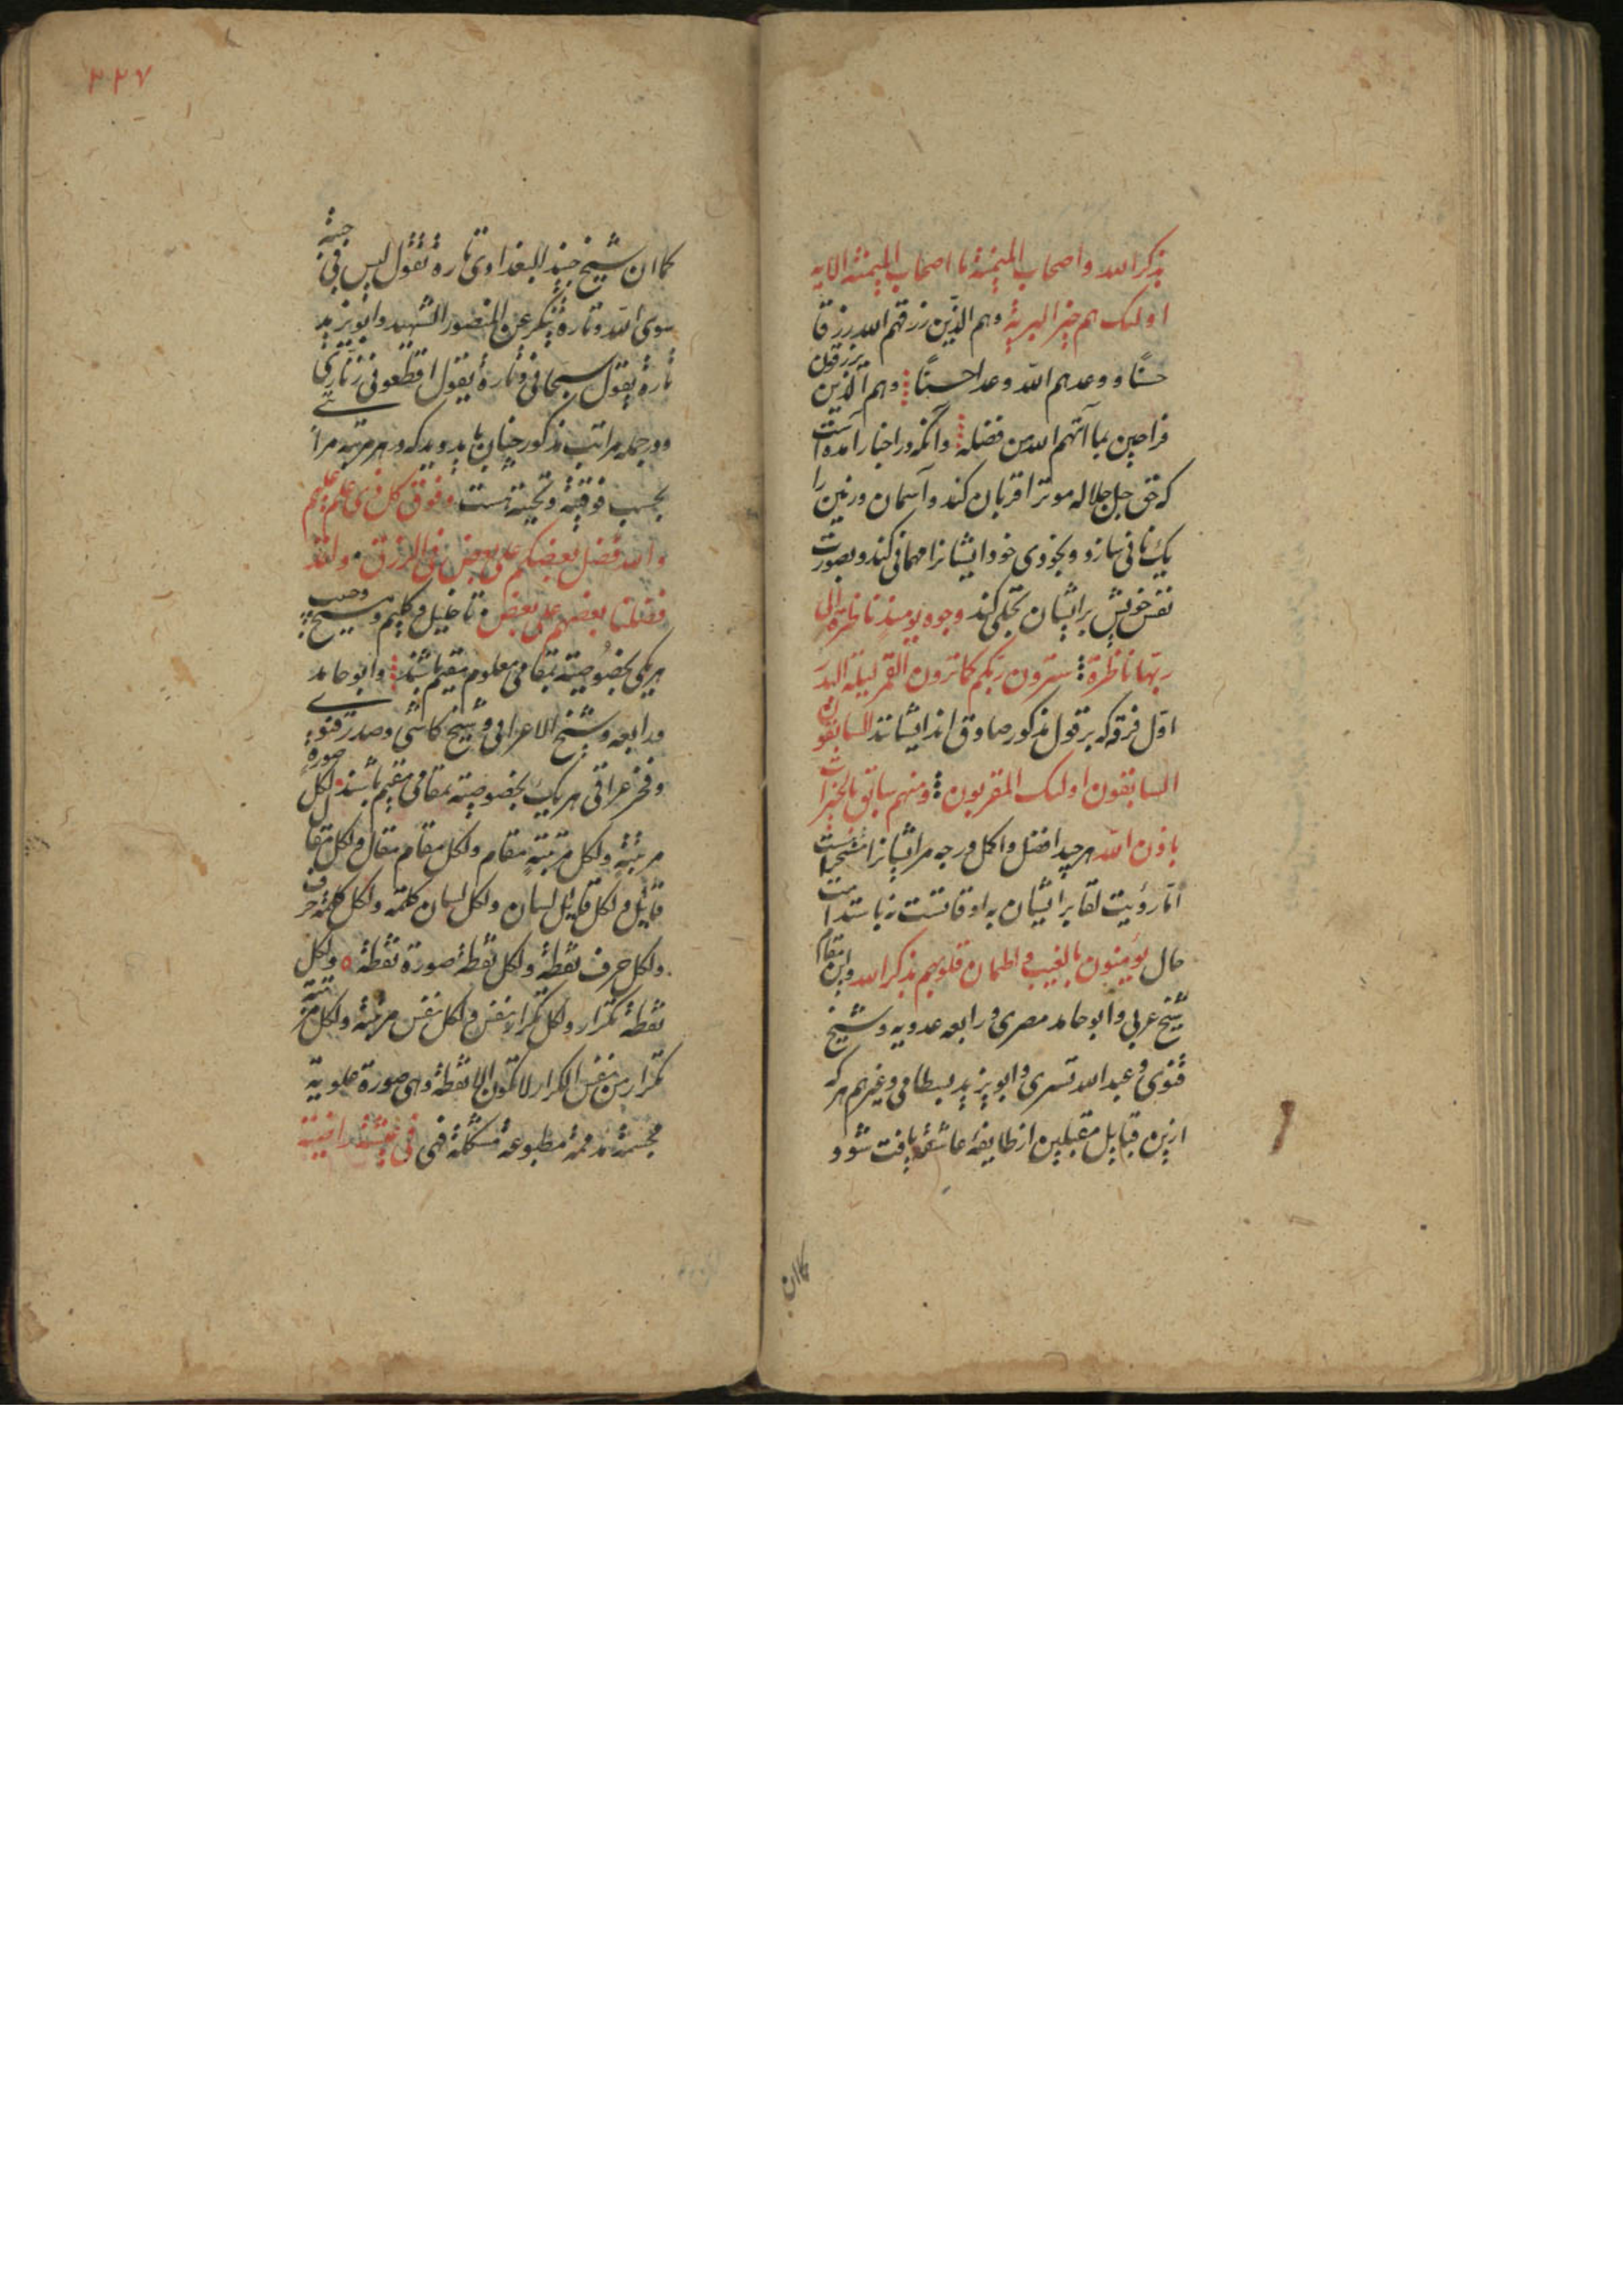 بذکر الله و اصحاب المیمنة ما اصحاب المیمنة الایه
اولئک هم خیر البریة وهم الذین رزقهم الله رزقا
حسنًا و وعدهم الله وعدا حسنًا وهم الذین یرزقون
فرحین بما آتهم الله من فضله وآنکه در اخبار آمده است
که حق جل جلاله موترا قربان کند و آسمان و زمین را
یک نانی سازد و بخودی خود ایشانرا مهمانی کند و بصورت
نفس خویش بر ایشان تجلی کند وجوه یومئذ ناضرة الی
ربها ناظرة سترون ربکم کما ترون القمر لیلة البدر
اوّل فرقه که بر قول مذکور صادق اند ایشانند السابقون
السابقون اولئک المقربون ومنهم سابق بالخیرات
باذن الله هرچند افضل و اکمل درجه مر ایشانرا
امّا رؤیت لقا بر ایشان به اوقاتست نه باستدامت
حال یؤمنون بالغیب و اطمان قلوبهم بذکر الله واین مقام
شیخ عربی و ابو حامد مصری و رابعه عدویه و شیخ
قنوی و عبدالله تستری و ابویزید بسطامی و غیرهم هر که
ازین قبایل مقبلین از طایفهٔ عاشقه یافت شود
کما ان
۲۲۷
کما ان شیخ جنید البغدادی تارة یقول لیس فی جبتی
سوی الله و تارة ینکر عن المنصور الشهید و ابویزید
تارة یقول سبحانی و تارة یقول اقطعونی زناری
و در جمله مراتب مذکور چنان باید دید که در هر مرتبه مراتبی
بحسب فوقیة و تحتیة هست وفوق کل ذی علم علیم
والله فضل بعضکم علی بعض فی الرزق ولقد
فضلنا بعضهم علی بعض تا خلیل و کلیم و مسیح و حبیب
هر یکی بخصوصیّة بمقامی معلوم مقیم باشند و ابو حامد
و رابعه و شیخ الاعرابی و شیخ کاشی و صدر قنوی
و فخر عراقی هر یک بخصوصیته بمقامی مقیم باشند لکل صورة
مرتبة ولکل مرتبة مقام ولکل مقام مقال ولکل مقال
قایل ولکل قایل لسان ولکل لسان کلمة ولکل کلمة حرف
ولکل حرف نقطة ولکل نقطة صورة نقطة ولکل
نقطة تکرار ولکل تکرار نفس ولکل نفس مرتبة ولکل مرتبة
تکرار من نفس التکرار لا تکون الا نقطة وهی صورة علویة
مجسمة مدغمة مطبوعة مشکلة فهی فی عیشة راضیة